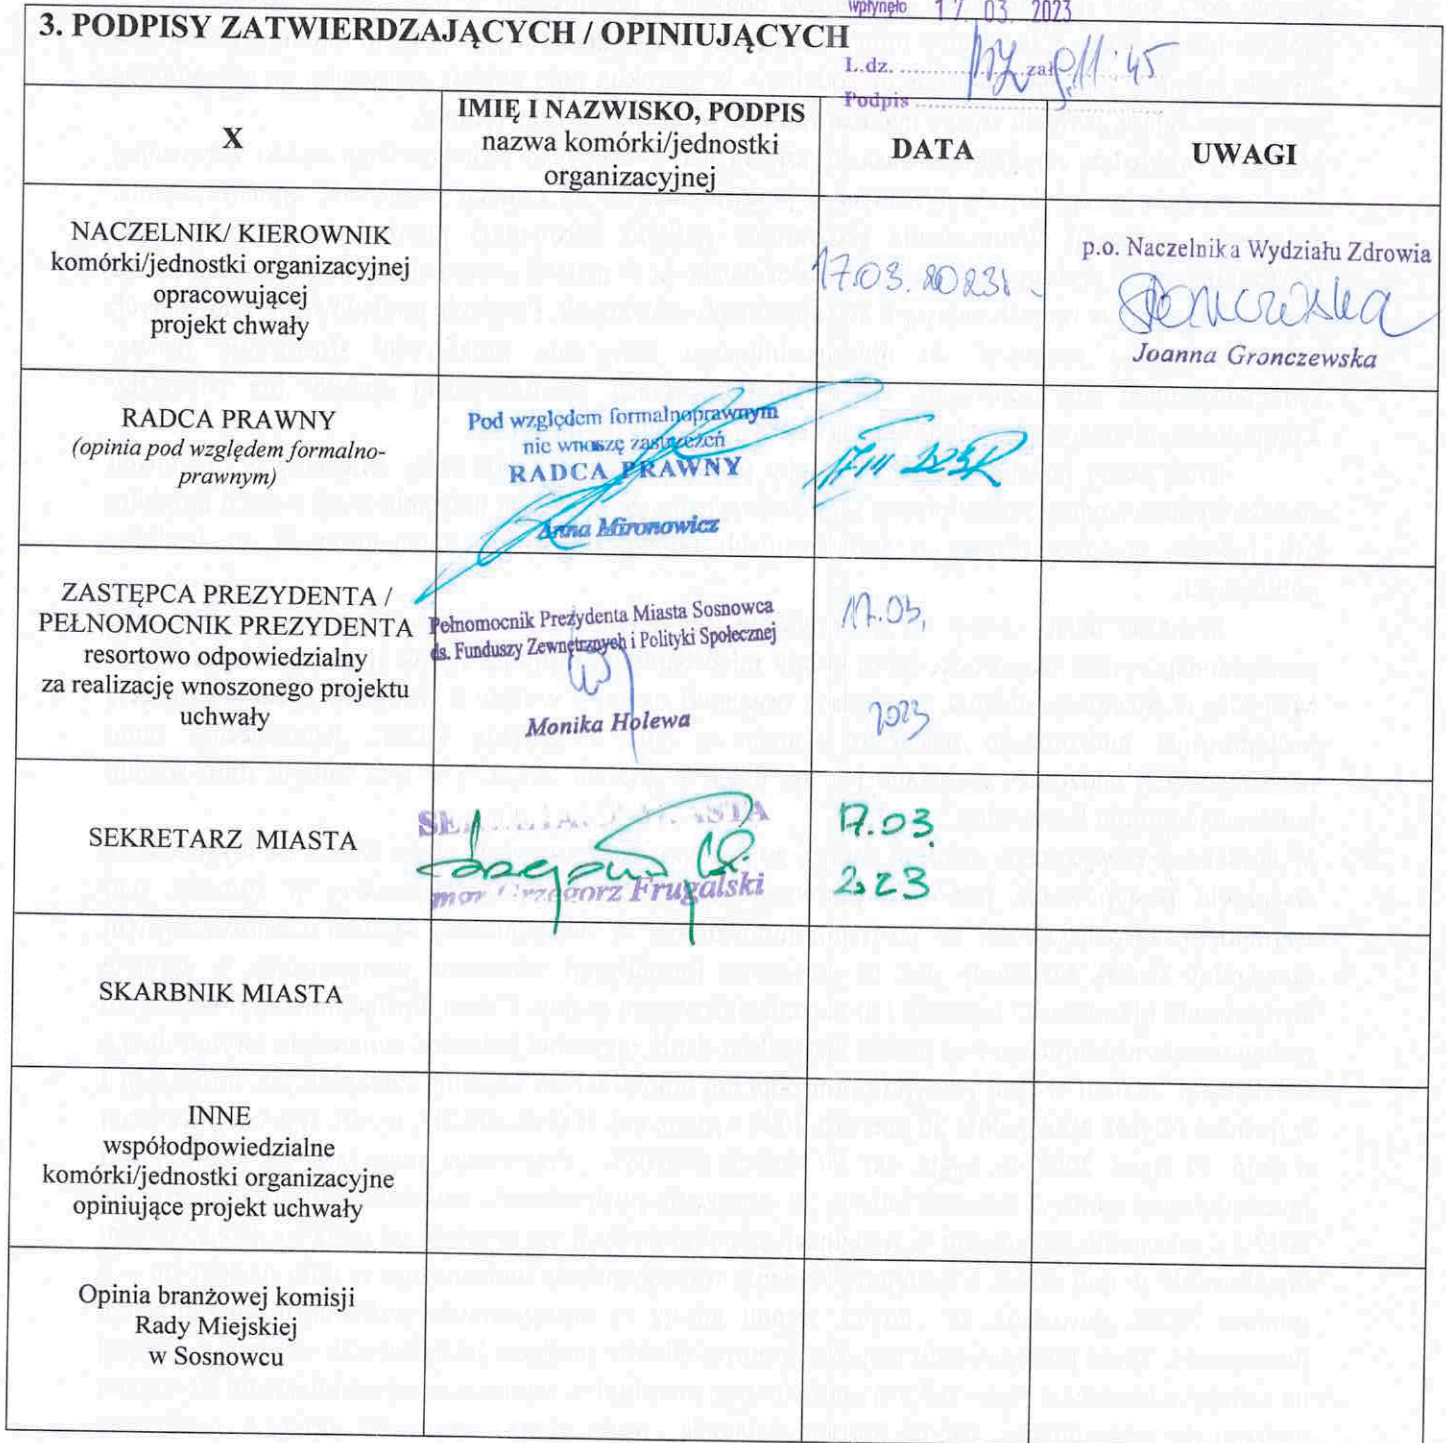 wpłynęło 17. 03. 2023
3. PODPISY ZATWIERDZAJĄCYCH / OPINIUJĄCYCH
L.dz. .......... zał. 11:45
Podpis ..........
X
IMIĘ I NAZWISKO, PODPIS
nazwa komórki/jednostki
organizacyjnej
DATA
UWAGI
NACZELNIK/ KIEROWNIK
komórki/jednostki organizacyjnej
opracowującej
projekt chwały
17.03.2023r.
p.o. Naczelnika Wydziału Zdrowia
Joanna Gronczewska
RADCA PRAWNY
(opinia pod względem formalno-
prawnym)
Pod względem formalnoprawnym
nie wnoszę zastrzeżeń
RADCA PRAWNY
Anna Mironowicz
17 III 2023R
ZASTĘPCA PREZYDENTA /
PEŁNOMOCNIK PREZYDENTA
resortowo odpowiedzialny
za realizację wnoszonego projektu
uchwały
Pełnomocnik Prezydenta Miasta Sosnowca
ds. Funduszy Zewnętrznych i Polityki Społecznej
Monika Holewa
17.03.
2023
SEKRETARZ MIASTA
SEKRETARZ MIASTA
mgr Grzegorz Frugalski
17.03.
2023
SKARBNIK MIASTA
INNE
współodpowiedzialne
komórki/jednostki organizacyjne
opiniujące projekt uchwały
Opinia branżowej komisji
Rady Miejskiej
w Sosnowcu